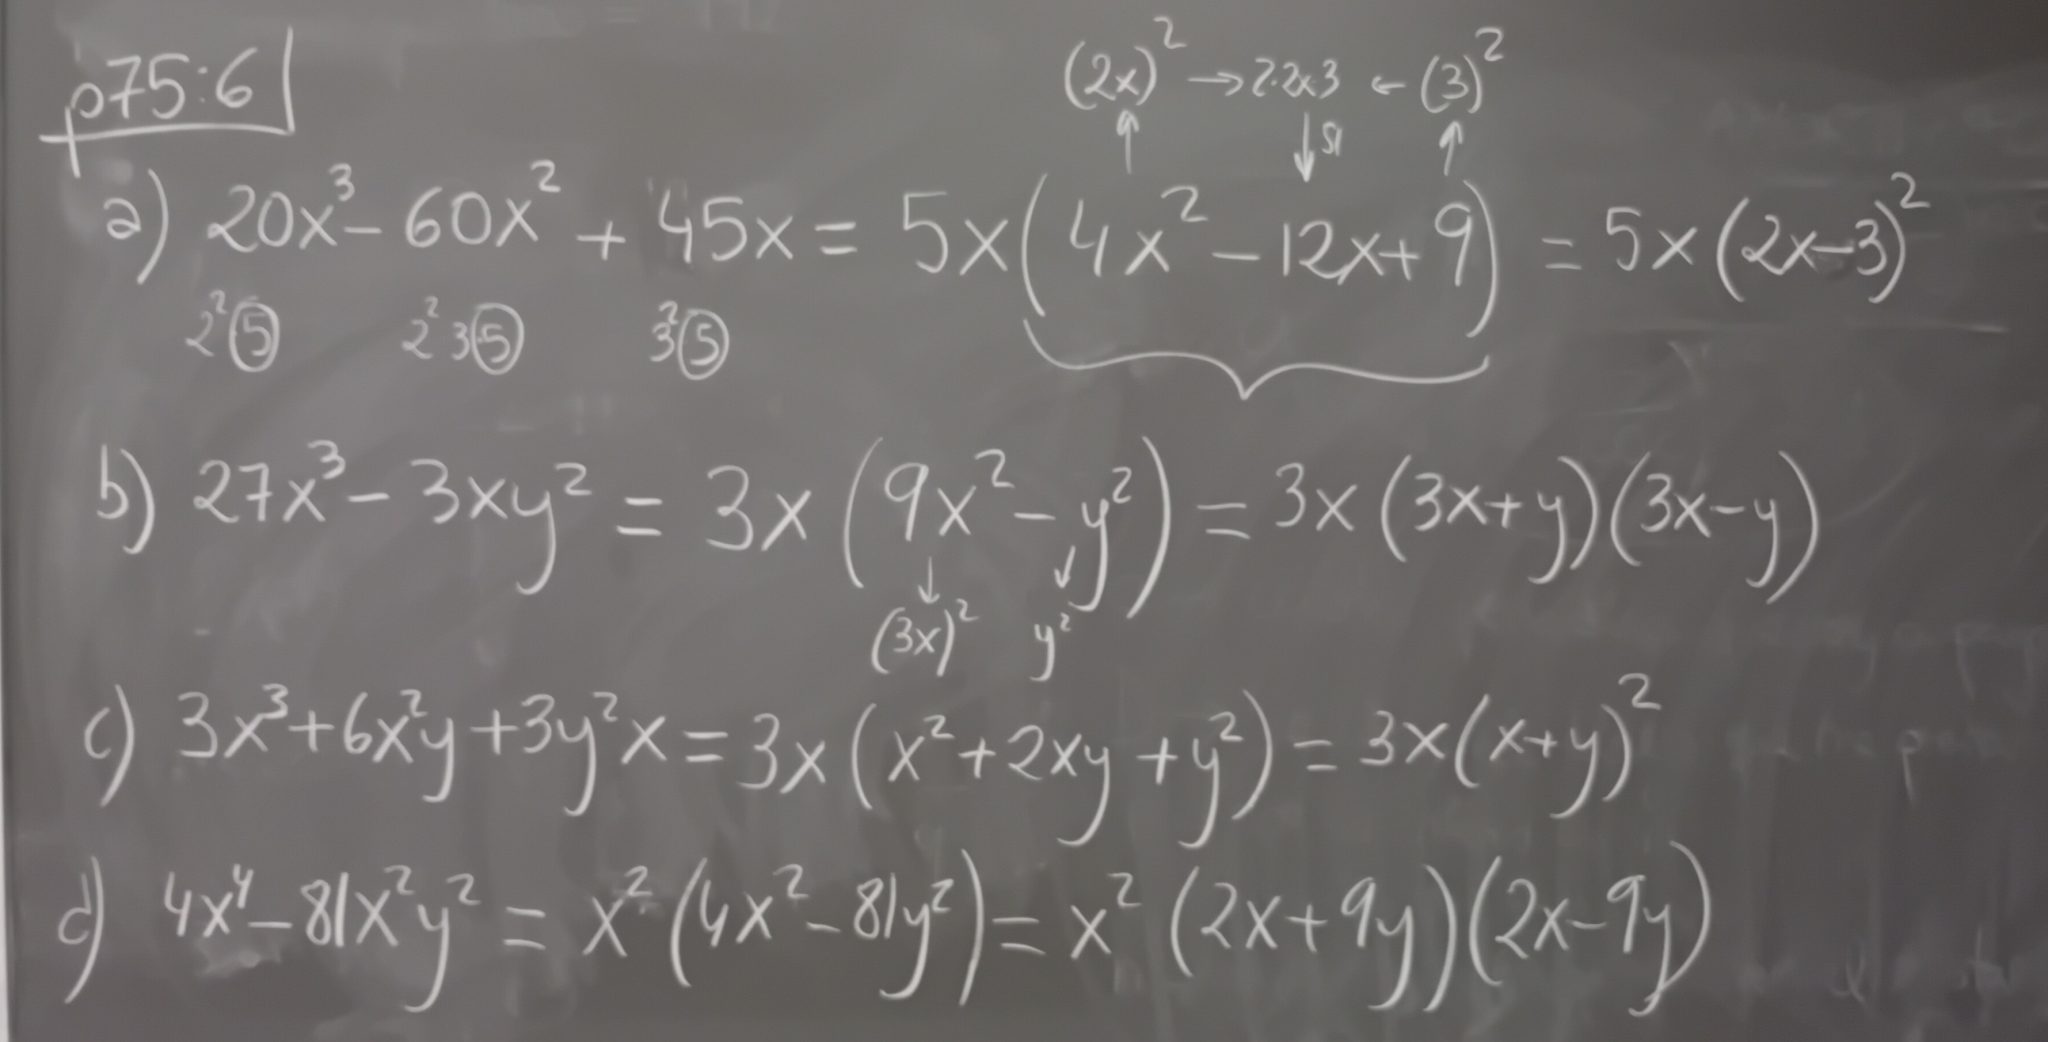 p75:6
(2x)² → 2·2x·3 ← (3)²
↑ ↓ SI ↑
a) 20x³ - 60x² + 45x = 5x(4x² - 12x + 9) = 5x(2x-3)²
2²5 2²35 3²5
b) 27x³ - 3xy² = 3x(9x² - y²) = 3x(3x+y)(3x-y)
↓ ↓
(3x)² y²
c) 3x³+6x²y+3y²x = 3x(x²+2xy+y²) = 3x(x+y)²
d) 4x⁴ - 81x²y² = x²(4x² - 81y²) = x²(2x+9y)(2x-9y)